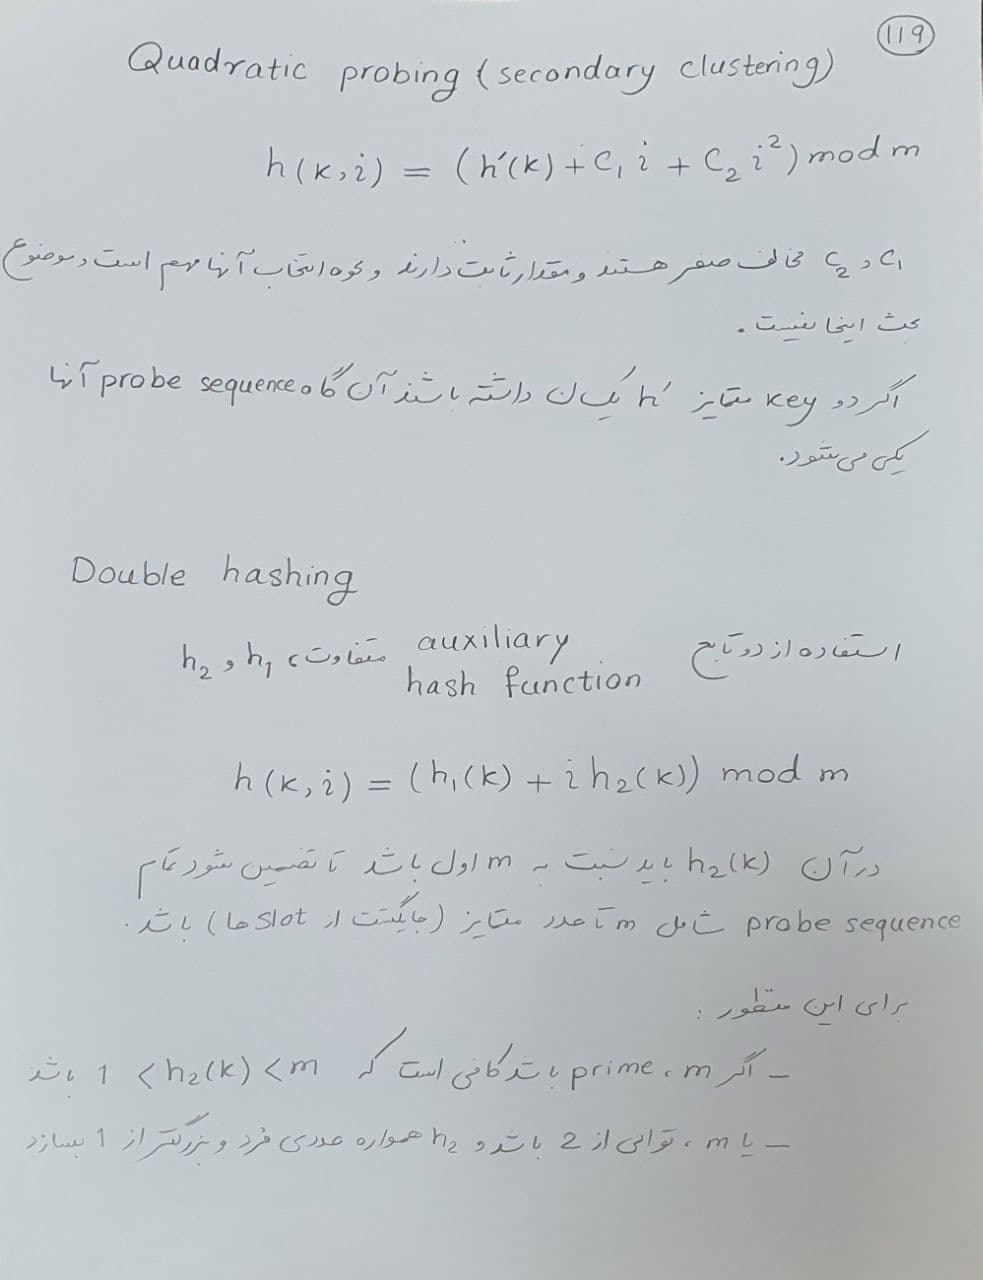 119
Quadratic probing (secondary clustering)
h(k,i) = (h'(k) + C₁ i + C₂ i²) mod m
C₁ و C₂ مخالف صفر هستند و مقدار ثابت دارند و نحوه انتخاب آنها مهم است و موضوع
بحث اینجا نیست.
اگر دو key متمایز h' یکسان داشته باشند آن گاه probe sequence آنها
یکی می‌شود.
Double hashing
استفاده از دو تابع auxiliary hash function متفاوت، h₁ و h₂
h(k,i) = (h₁(k) + i h₂(k)) mod m
در آن h₂(k) باید نسبت به m اول باشد تا تضمین شود تمام
probe sequence شامل m تا عدد متمایز (جایگشت از slot ها) باشد.
برای این منظور :
– اگر m، prime باشد کافی است که 1 < h₂(k) < m باشد
– یا m، توانی از 2 باشد و h₂ همواره عددی فرد و بزرگتر از 1 بسازد